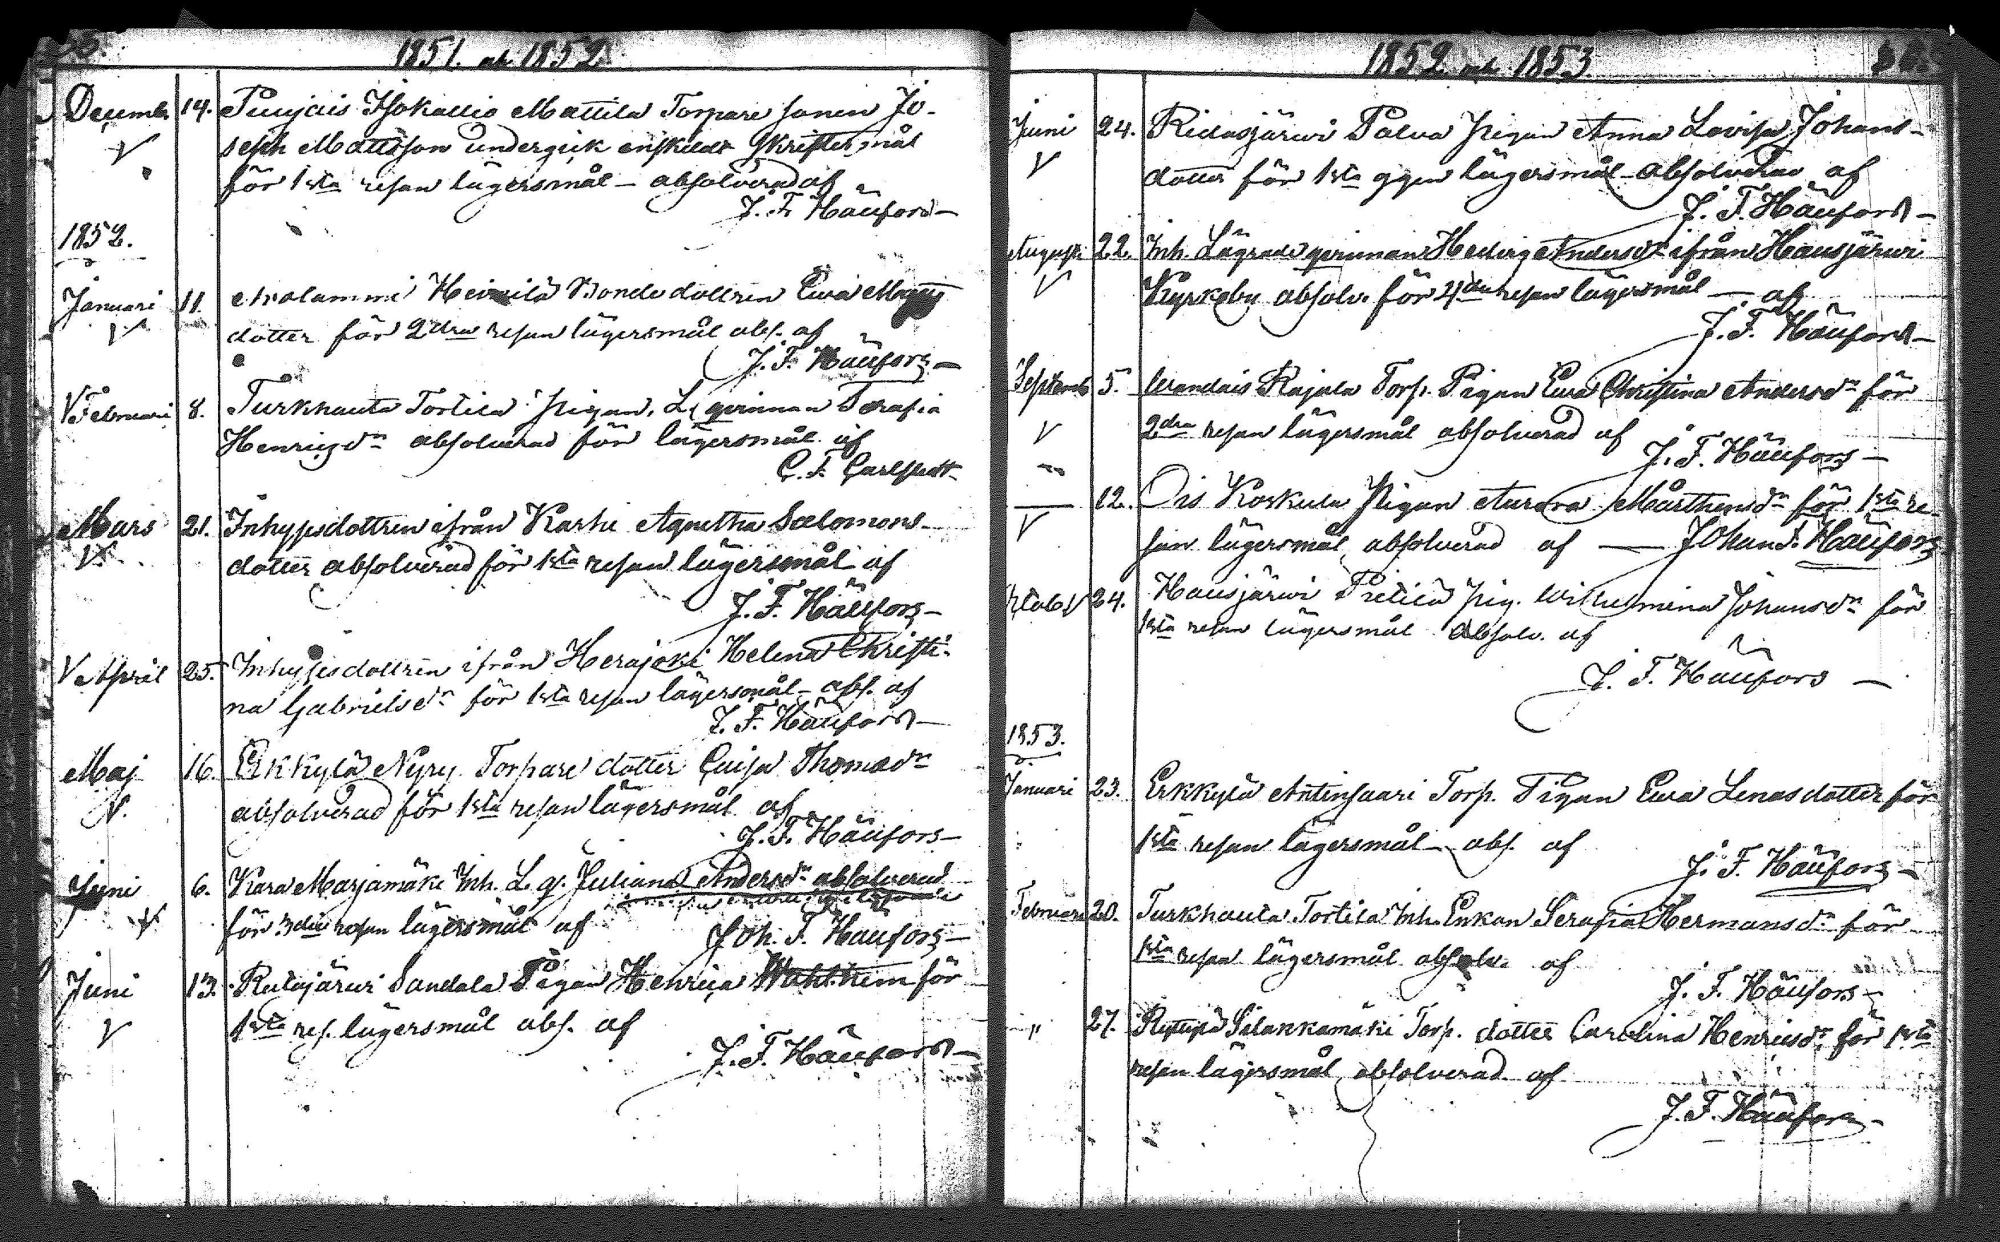 1851. och 1852
Decemb. 14. Puujais Isokallio Mattila Torpare sonen Jo-
seph Mattsson undergick enskildt Skriftermål
för 1sta resan lägersmål – absolverad af
J. F. Häüfors –
1852.
Januari 11. Heikkilä Bonde dottren Ewa
dotter för 2dra resan lägersmål abs. af
J. F. Häüfors –
V. Februari 8. Turkhauta Tortila Pigan, L. qvinnan Serafia
Henrigsdr absolverad för lägersmål af
C. F. Carlstedt
Mars 21. Inhysesdottren ifrån Karhi Agnetha Salomons-
dotter absolverad för 1sta resan lägersmål af
J. F. Häüfors –
V. April 25. Inhysesdottren ifrån Herajoki Helena Christi-
na Gabrielsdr för 1sta resan lägersmål – abs. af
J. F. Häüfors –
Maj 16. Erkkylä Nyry Torpare dotter Caisa Thomasdr
V. absolverad för 1sta resan lägersmål af
J. F. Häüfors –
Juni 6. Kara Marjamäki Inh. L. q. Juliana Andersdr absolverad
för 3dje resan lägersmål af
Joh. F. Häüfors –
Juni 13. Ridasjärwi Sandala Pigan Henrica för
V 1sta res. lägersmål abs. af
J. F. Häüfors –
1852 och 1853
Juni 24. Ridasjärwi Palva Pigan Anna Lovisa Johans-
V dotter för 1sta ggn lägersmål – absolverad af
J. F. Häüfors –
August 22. Inh. Lägrade qvinnan Hedvig Andersdr ifrån Hausjärwi
V Kyrkoby absolv. för 4de resan lägersmål – af
J. F. Häüfors –
Septemb. 5. Rajala Torp. Pigan Ewa Christina Andersdr för
V 2dra resan lägersmål absolverad af
J. F. Häüfors –
12. Ois Koskula Pigan Aurora Mårthensdr för 1sta re-
V san lägersmål absolverad af — Johan F. Häüfors
Octob. V 24. Hausjärwi Pritilä Pig. Wilhelmina Johansdr för
1sta resan lägersmål absolv. af
J. F. Häüfors –
1853.
Januari 23. Erkkylä Antinsaari Torp. Pigan Ewa Lenasdotter för
1sta resan lägersmål – abs. af
J. F. Häüfors –
Februari 20. Turkhauta Tortila Inh. Enkan Serafia Hermansdr för
1sta resan lägersmål absolv. af
J. F. Häüfors –
" 27. Silakkamäki Torp. dotter Carolina Henricsdr för 1sta
resan lägersmål absolverad af
J. F. Häüfors –